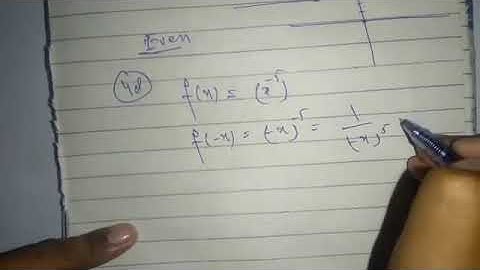 Even
48 f(x) = (x⁻⁵)
f(-x) = (-x)⁻⁵ = 1/(-x)⁵